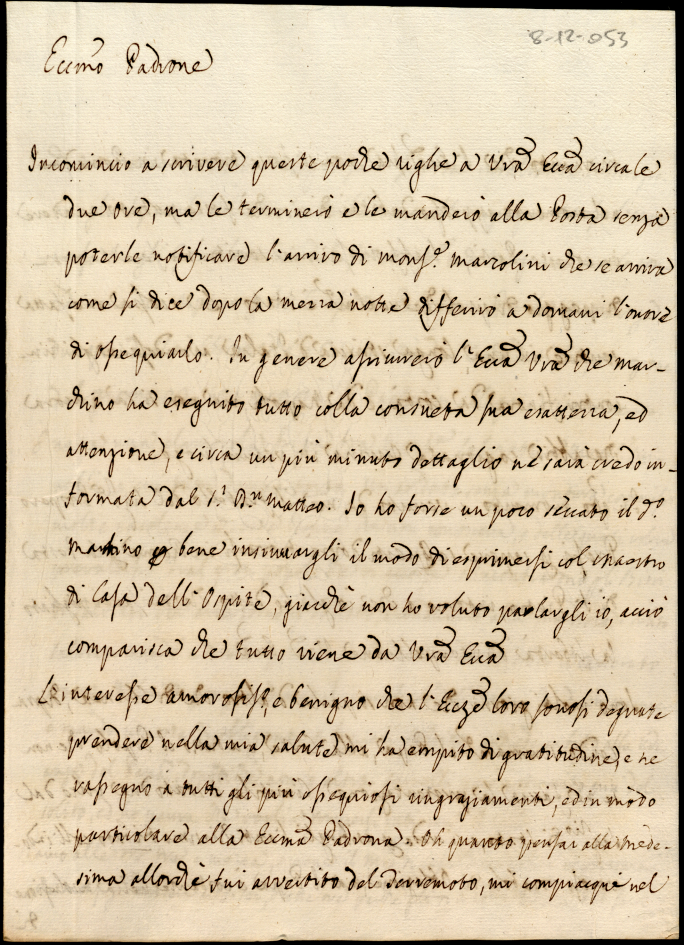 8-12-053
Eccmo Padrone
Incomincio a scrivere queste poche righe a Vra Ecca circa le
due ore, ma le terminerò e le manderò alla Posta senza
poterle notificare l'arrivo di Monsr. Marcolini che se arriva
come si dice dopo la mezza notte differirò a domani l'onore
di ossequiarlo. In genere assicurerò l'Ecca Vra che Mar-
chino ha eseguito tutto colla consueta sua esattezza, ed
attenzione, e circa un più minuto dettaglio ne sarà credo in-
formata dal Sr. Matteo. Io ho forse un poco seccato il do.
bene insinuargli il modo di esprimersi col Maestro
di Casa dell'Ospite, giacchè non ho voluto parlargli io, acciò
comparisca che tutto viene da Vra Ecca
L'interesse amorosiss., e benigno che l'Ecze loro sonosi degnate
prendere nella mia salute mi ha empito di gratitudine, e ne
rassegno a tutti gli più ossequiosi ringraziamenti, ed in modo
particolare alla Eccma Padrona. Oh quanto pensai alla mede-
sima allorchè fui avvertito del Terremoto, mi compiacqui nel